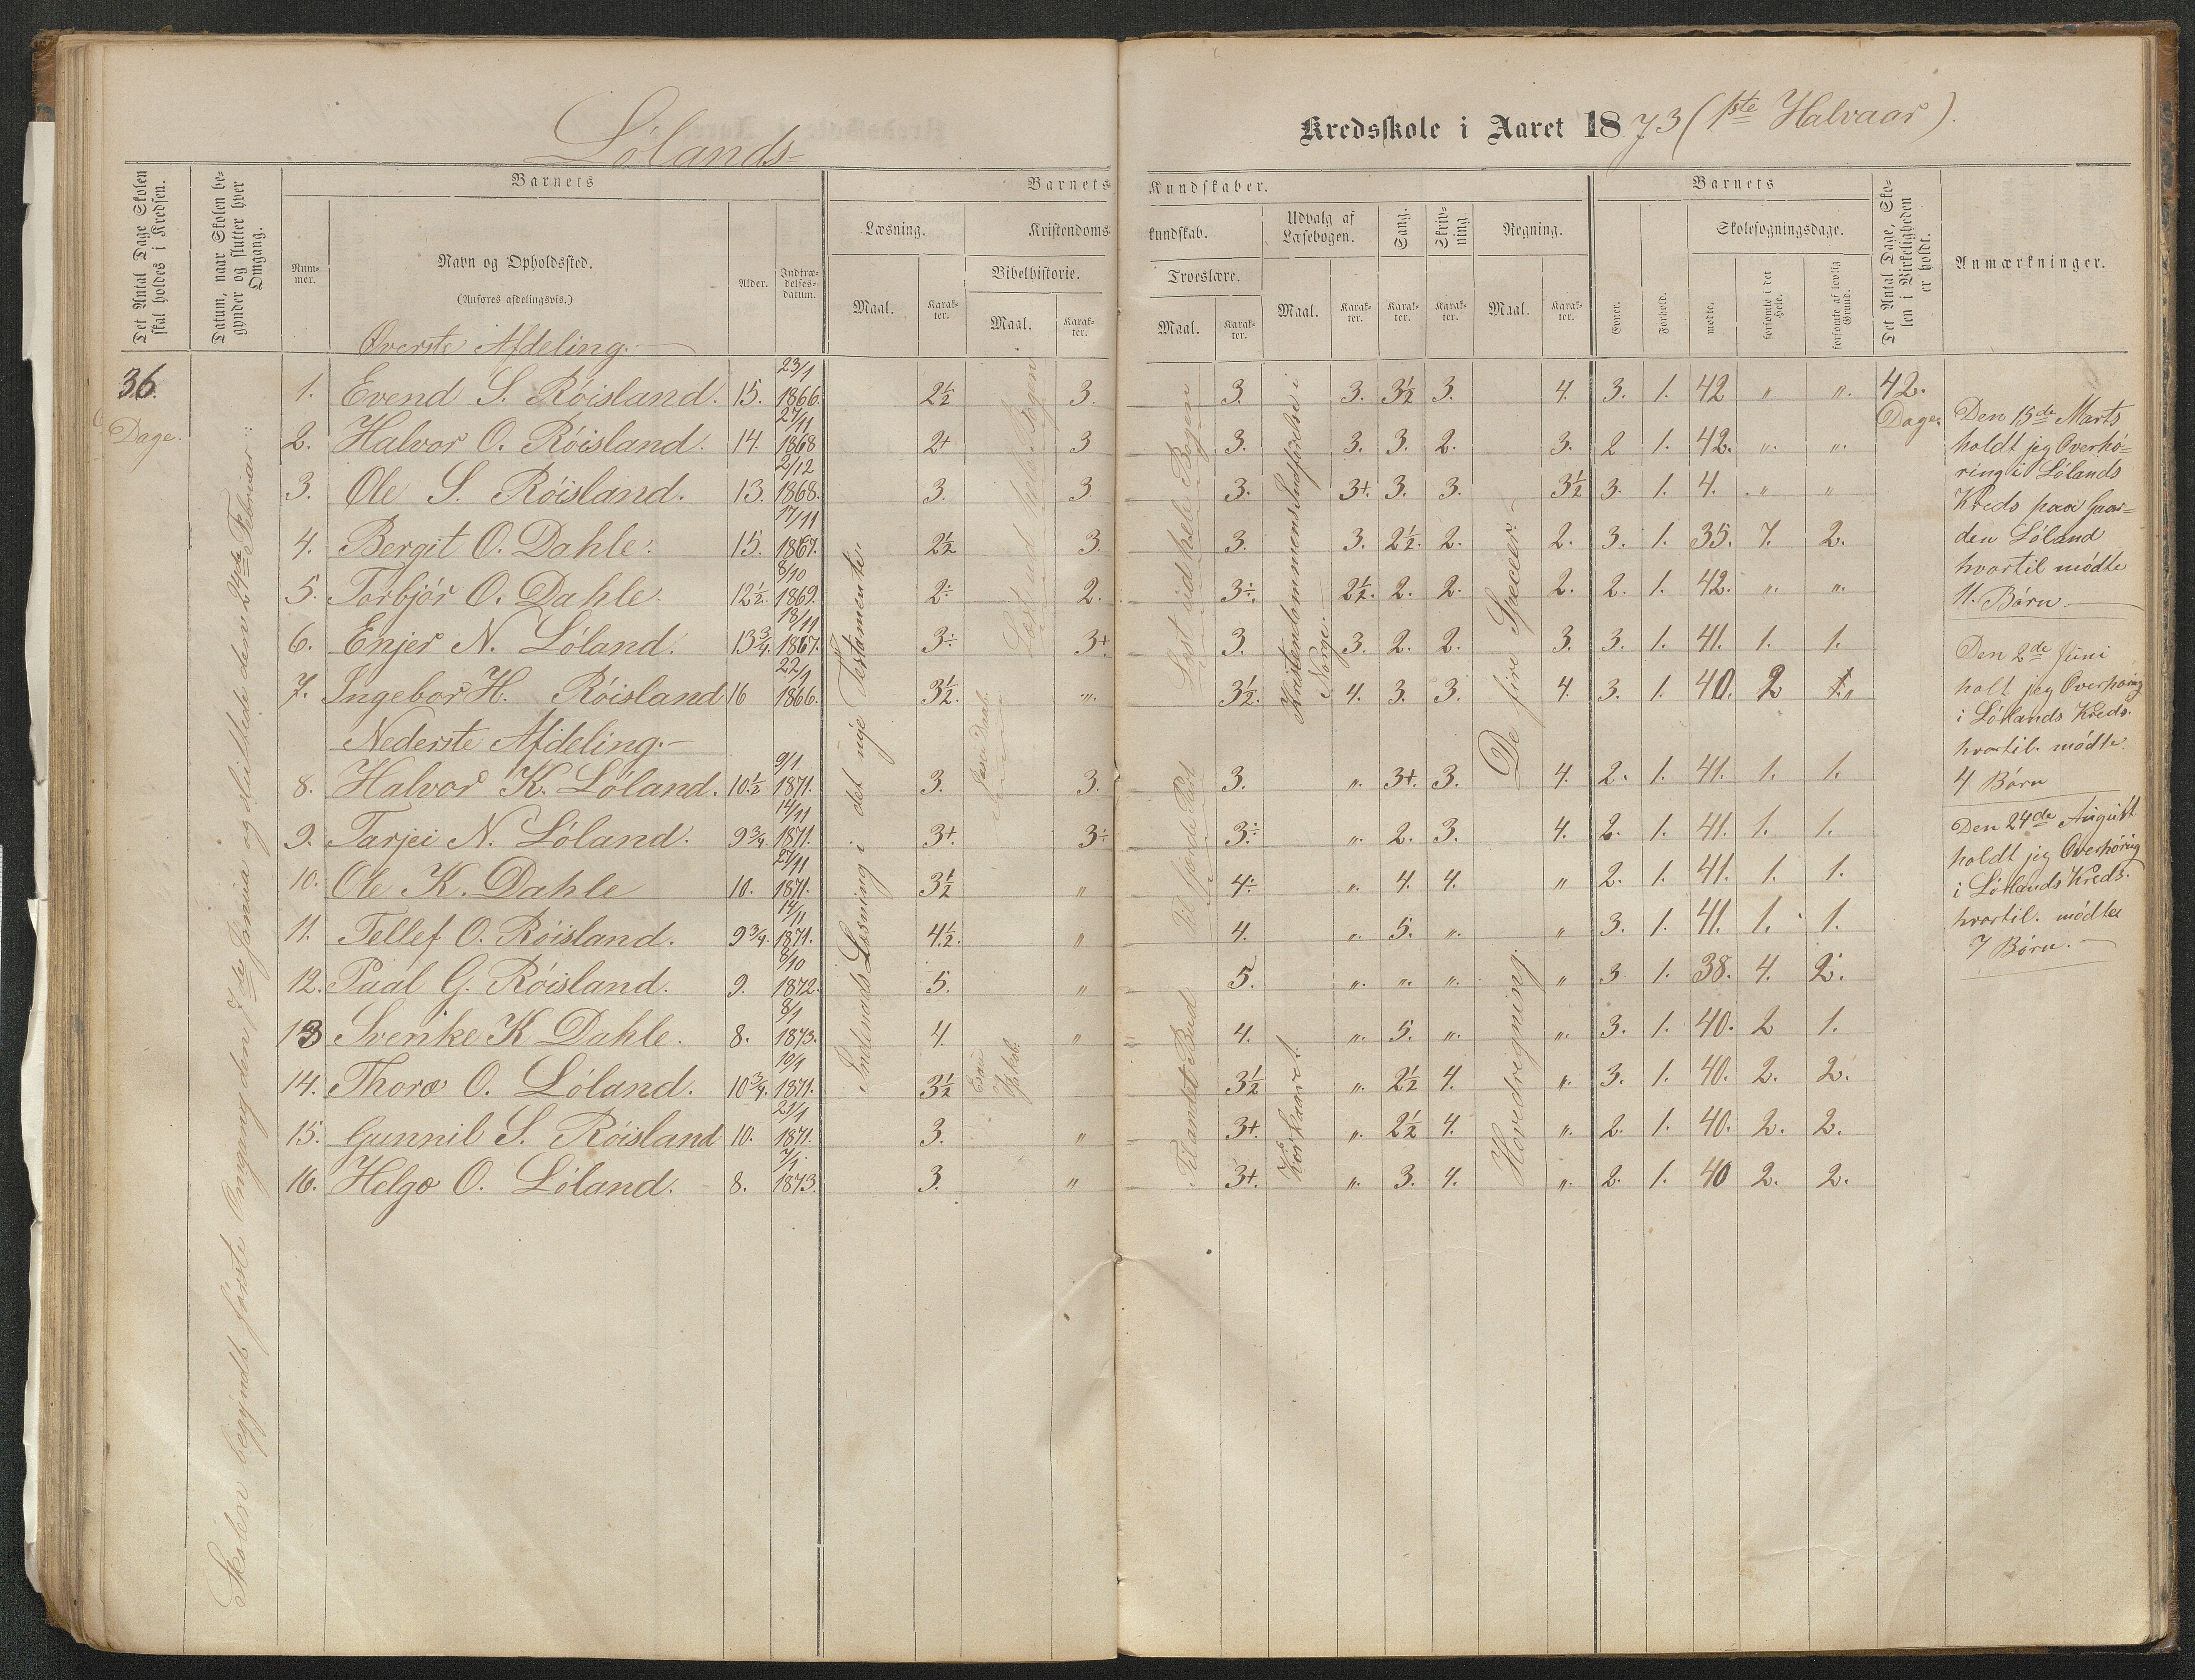 Lölands-
Kredsskole i Aaret 1873 (1ste Halvaar).
Det Antal Dage Skolen skal holdes i Kredsen.
Datum, naar Skolen begynder og slutter hver Omgang.
Barnets
Nummer.
Navn og Opholdssted.
(Anføres afdelingsvis.)
Alder.
Indtrædelsesdatum.
Barnets Kundskaber.
Læsning.
Maal.
Karakter.
Kristendomskundskab.
Bibelhistorie.
Maal.
Karakter.
Troeslære.
Maal.
Karakter.
Udvalg af Læsebogen.
Maal.
Karakter.
Sang.
Karakter.
Skrivning
Karakter.
Regning.
Maal.
Karakter.
Barnets
Evner.
Forhold.
Skolesøgningsdage.
mødte.
forsømte i det Hele.
forsømte af lovlig Grund.
Det Antal Dage, Skolen i Virkeligheden er holdt.
Anmærkninger.
36.
Dage.
Skolen begyndt förste Omgang den 7de Januia og sluttede den 24de Februar
Överste Afdeling.
1. Evend S. Röisland. 15. 23/1 1866. 2½ 3. 3. 3. 3½ 3. 4. 3. 1. 42 " ".
2. Halvor O. Röisland. 14. 27/11 1868 2+ 3 3. 3. 3. 2. 3. 2 1. 42. ". ".
3. Ole S. Röisland. 13. 2/12 1868. 3. 3. 3. 3+. 3. 3. 3½ 3. 1. 4. " "
4. Bergit O. Dahle. 15. 17/11 1867. 2½ 3. 3. 3. 2½. 2. 2. 3. 1. 35. 7. 2.
5. Torbjör O. Dahle. 12½. 8/10 1869. 2÷ 2. 3÷. 2½. 2. 2. 2. 2. 1. 42. ". ".
6. Enjer N. Löland. 13¾. 18/11 1867. 3÷ 3+. 3. 3. 2. 2. 3. 3. 1. 41. 1. 1.
7. Ingebor H. Röisland 16 22/1 1866. 3½. ". 3½. 4. 3. 3. 4. 3. 1. 40. 2 "
Nederste Afdeling.-
8. Halvor K. Löland. 10½ 9/1 1871. 3. 3. 3. ". 3+. 3. 4. 2. 1. 41. 1. 1.
9. Tarjei N. Löland. 9¾. 14/11 1871. 3+. 3÷ 3÷ ". 2. 3. 4. 2. 1. 41. 1. 1.
10. Ole K. Dahle 10. 27/11 1871. 3½ " 4÷ ". 4. 4. " 2. 1. 41. 1. 1.
11. Tellef O. Röisland. 9¾. 14/11 1871. 4½. " 4. ". 5. ". " 3. 1. 41. 1. 1.
12. Paal G. Röisland. 9. 8/10 1872. 5. " 5. ". ". ". " 3. 1. 38. 4. 2.
13 Svenke K Dahle. 8. 8/1 1873. 4. " 4. ". 5. ". ". 3. 1. 40. 2 1.
14. Thoro O. Löland. 10¾. 10/1 1871. 3½ 3½ ". 2½ 4. ". 3. 1. 40. 2. 2.
15. Gunnil S. Röisland 10. 21/1 1871. 3. " 3+. ". 2½ 4. ". 2. 1. 40. 2. 2.
16. Helgo O. Löland. 8. 7/1 1873. 3. " 3+. ". 3. 4. ". 2. 1. 40 2. 2.
Indenads Læsning i det nye Testamente.
Læst ud hele Bogen
Læst ud hele Bogen
Til fjerde Part
Til andet Bud
Kristendommens Indførelse i Norge.
De fire Specier.
Hovedregning.
42.
Dage.
Den 15de Marts
holdt jeg Overhö=
ring i Lölands
Kreds paa Gaar=
den Löland
hvortil mödte
11. Börn
Den 2de Juni
holt jeg Overhöring
i Lölands Kreds.
hvortil. mödte.
4 Börn
Den 24de August
holdt jeg Overhöring
i Lölands Kreds.
hvortil. mödte
7 Börn.